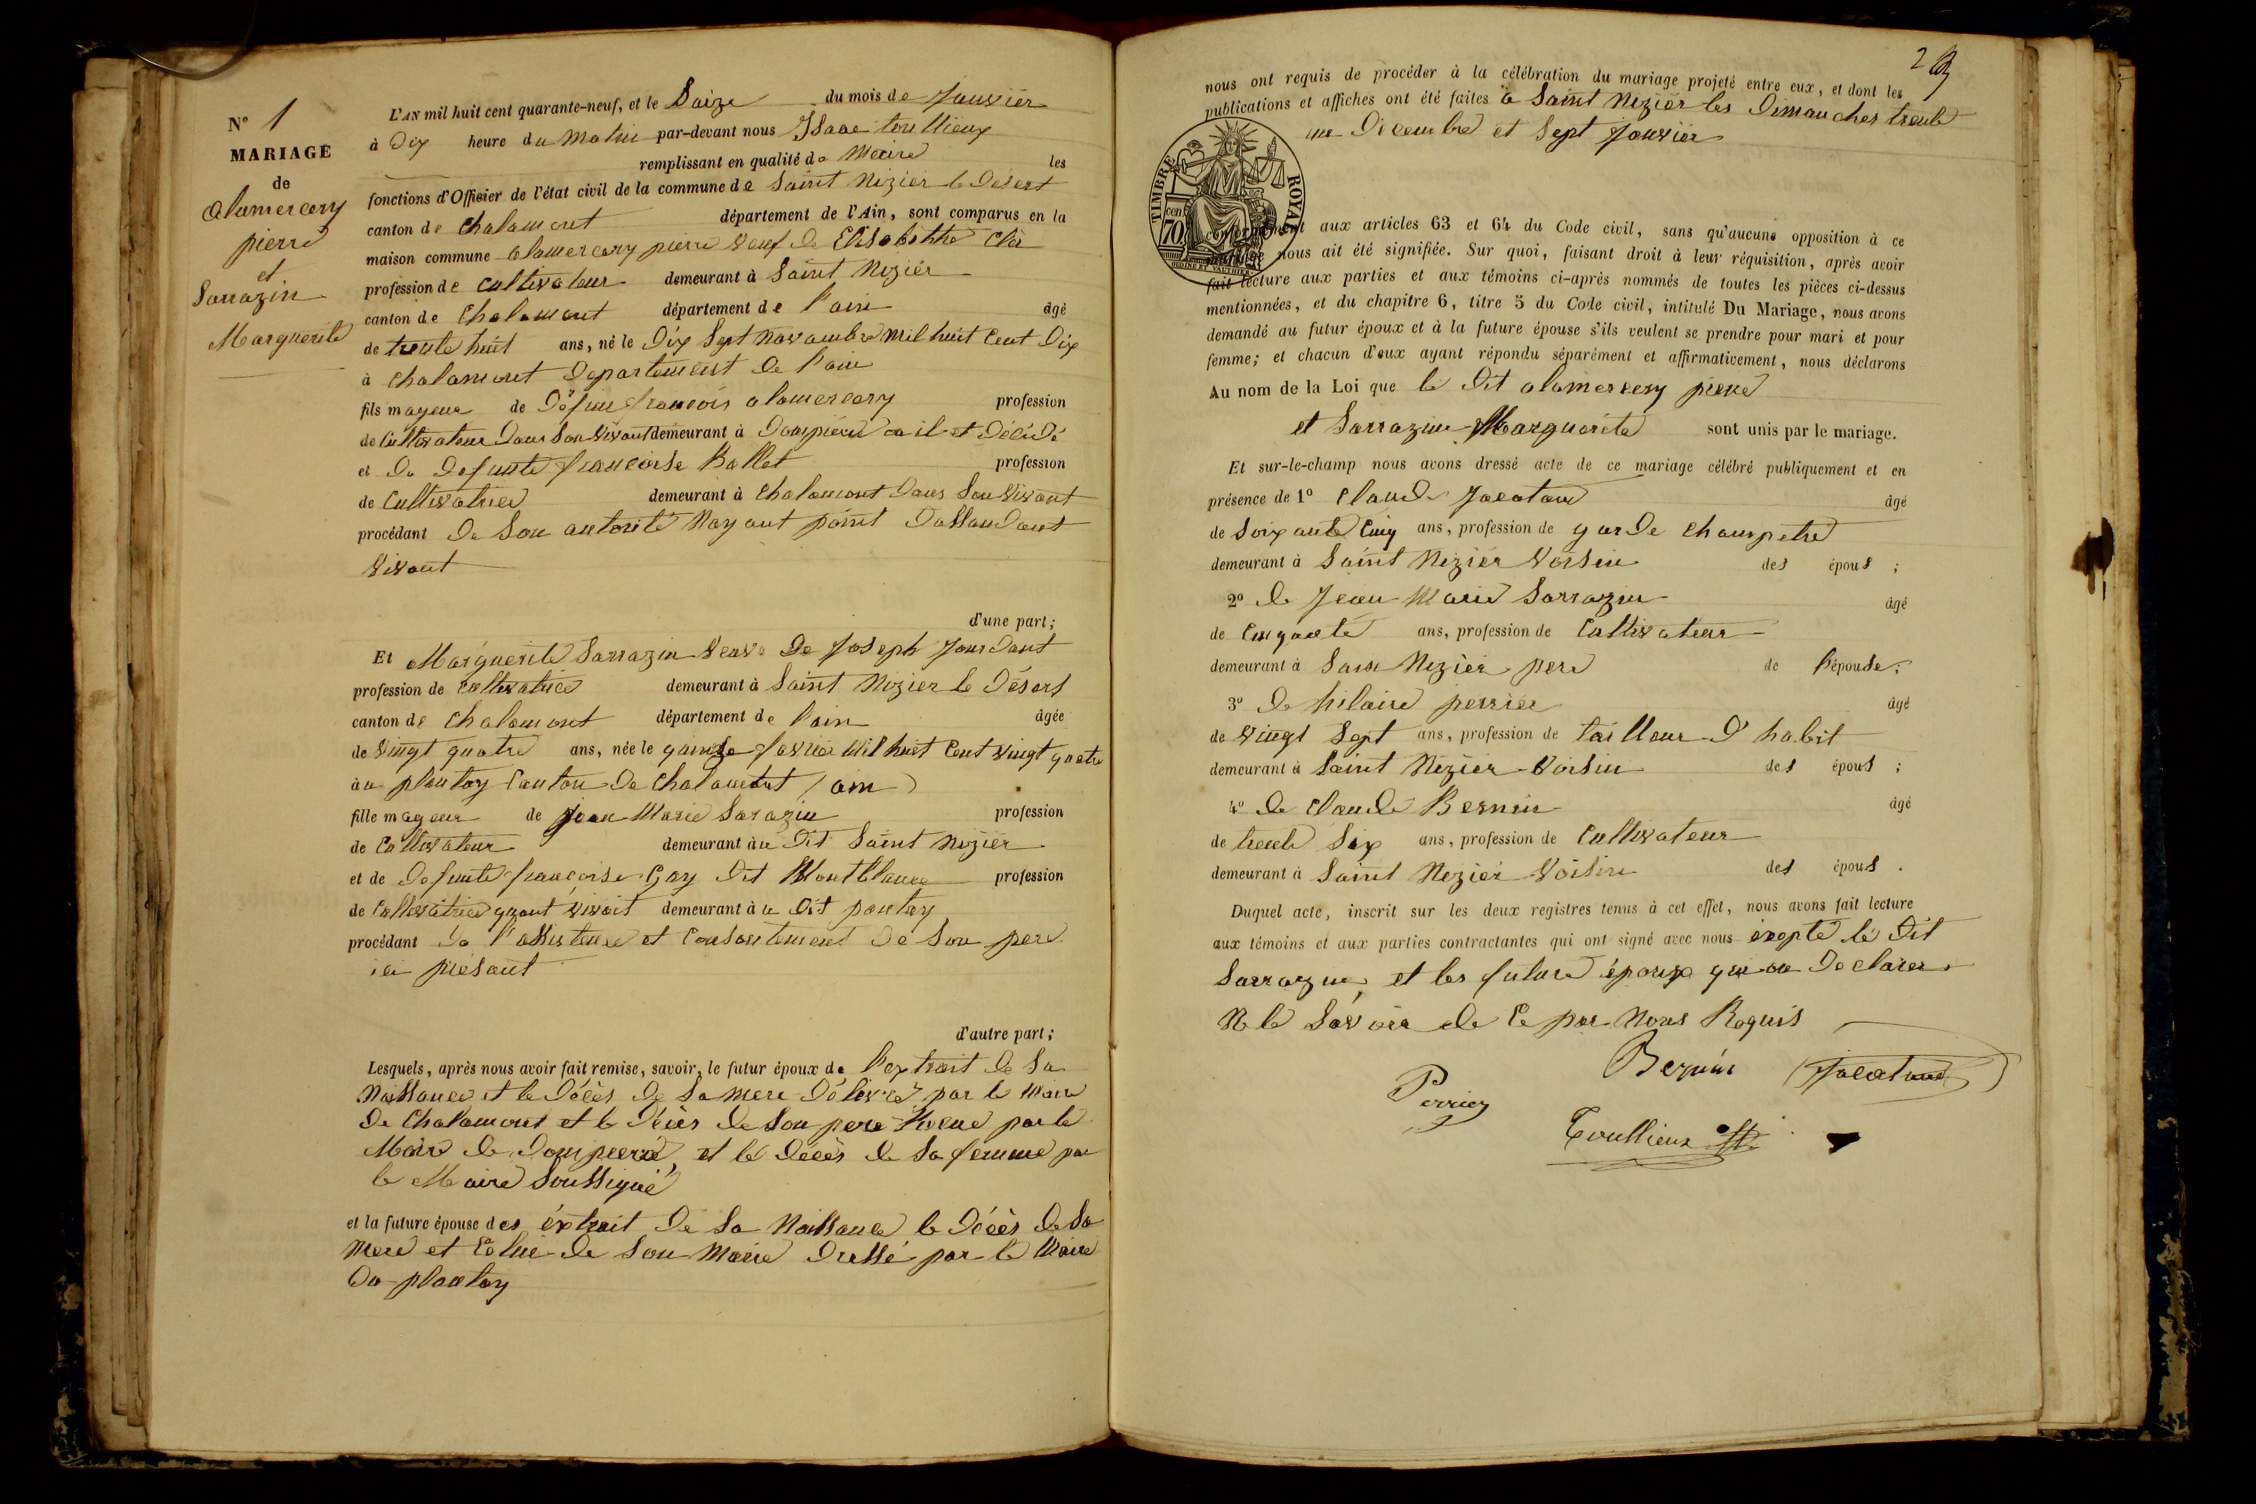 N° 1
MARIAGE
de
alamercery
pierre
et
Sarrazin
Marguerite
L'AN mil huit cent quarante-neuf, et le Saize du mois de Janvier
à Dix heure du Matin par-devant nous Isaac toullieux
remplissant en qualité de Maire les
fonctions d'Officier de l'état civil de la commune de Saint Nizier le Désert
canton de Chalamont département de l'Ain, sont comparus en la
maison commune alamercery pierre veuf de Elisabethe
profession de Cultivateur demeurant à Saint Nizier
canton de Chalamont département de l'ain âgé
de trente huit ans, né le Dix Sept Novambre mil huit Cent Dix
à Chalamont Departement de l'ain
fils mageur de Defun francois alamercery profession
de Cultivateur Dans Son Vivant demeurant à Dompierre ou il et Décédé
et de Defunte francoise Ballet profession
de Cultivatrice demeurant à Chalamont Dans Son Vivant
procédant de Son autorité Nayant point Dassandant
Vivant
d'une part;
Et Marguerite Sarrazin Veuve De Joseph Jourdant
profession de Cultivatrice demeurant à Saint Nizier le Désert
canton de Chalamont département de l'ain âgée
de Vingt quatre ans, née le quinze Janvier Mil huit Cent vingt quatre
au plantay Canton De Chalamont (ain)
fille mageur de Jean Marie Sarazin profession
de Cultivateur demeurant au Dit Saint Nizier
et de Defunte francoise Gay Dit Montblanc profession
de Cultivatrice quant vivait demeurant au Dit pantay
procédant De l'assistence et Consentement De Son pere
ici présant
d'autre part;
Lesquels, après nous avoir fait remise, savoir, le futur époux de l'extrait de Sa
Naissance et le Décès De Sa mere Délivré par le Maire
De Chalamont et le Décès De Son pere par le
Maire de Dompierre, et le décès de Sa femme par
le Maire Soussigné
et la future épouse des éxtrait De Sa Naissance le Décès De Sa
Mere et Celui De Son Marie Dressé par le Maire
Du plantay
2
nous ont requis de procéder à la célébration du mariage projeté entre eux, et dont les
publications et affiches ont été faites à Saint Nizier les Dimanches trente
un Décembre et Sept Janvier
TIMBRE ROYAL
70 cen
conformément aux articles 63 et 64 du Code civil, sans qu'aucune opposition à ce
mariage nous ait été signifiée. Sur quoi, faisant droit à leur réquisition, après avoir
fait lecture aux parties et aux témoins ci-après nommés de toutes les pièces ci-dessus
mentionnées, et du chapitre 6, titre 5 du Code civil, intitulé Du Mariage, nous avons
demandé au futur époux et à la future épouse s'ils veulent se prendre pour mari et pour
femme; et chacun d'eux ayant répondu séparément et affirmativement, nous déclarons
Au nom de la Loi que le Dit alamercery pierre
et Sarrazin Marguerite sont unis par le mariage.
Et sur-le-champ nous avons dressé acte de ce mariage célébré publiquement et en
présence de 1° Claude Jacatau âgé
de Soixante Cinq ans, profession de garde Champetre
demeurant à Saint Nizier Voisin des épous ;
2° de Jean Marie Sarrazin âgé
de Cinquante ans, profession de Cultivateur
demeurant à Saint Nizier pere de l'épouse;
3° de hilaire perrier âgé
de Vingt Sept ans, profession de tailleur D'habit
demeurant à Saint Nizier Voisin des épous ;
4° de Claude Bernin âgé
de trente Six ans, profession de Cultivateur
demeurant à Saint Nizier Voisin des épous .
Duquel acte, inscrit sur les deux registres tenus à cet effet, nous avons fait lecture
aux témoins et aux parties contractantes qui ont signé avec nous éxepté le Dit
Sarrazin, et les future époux qui on Declarer
Ne le Savoir de Ce par Nous Requis
Bernin
Perrier
Toullieux